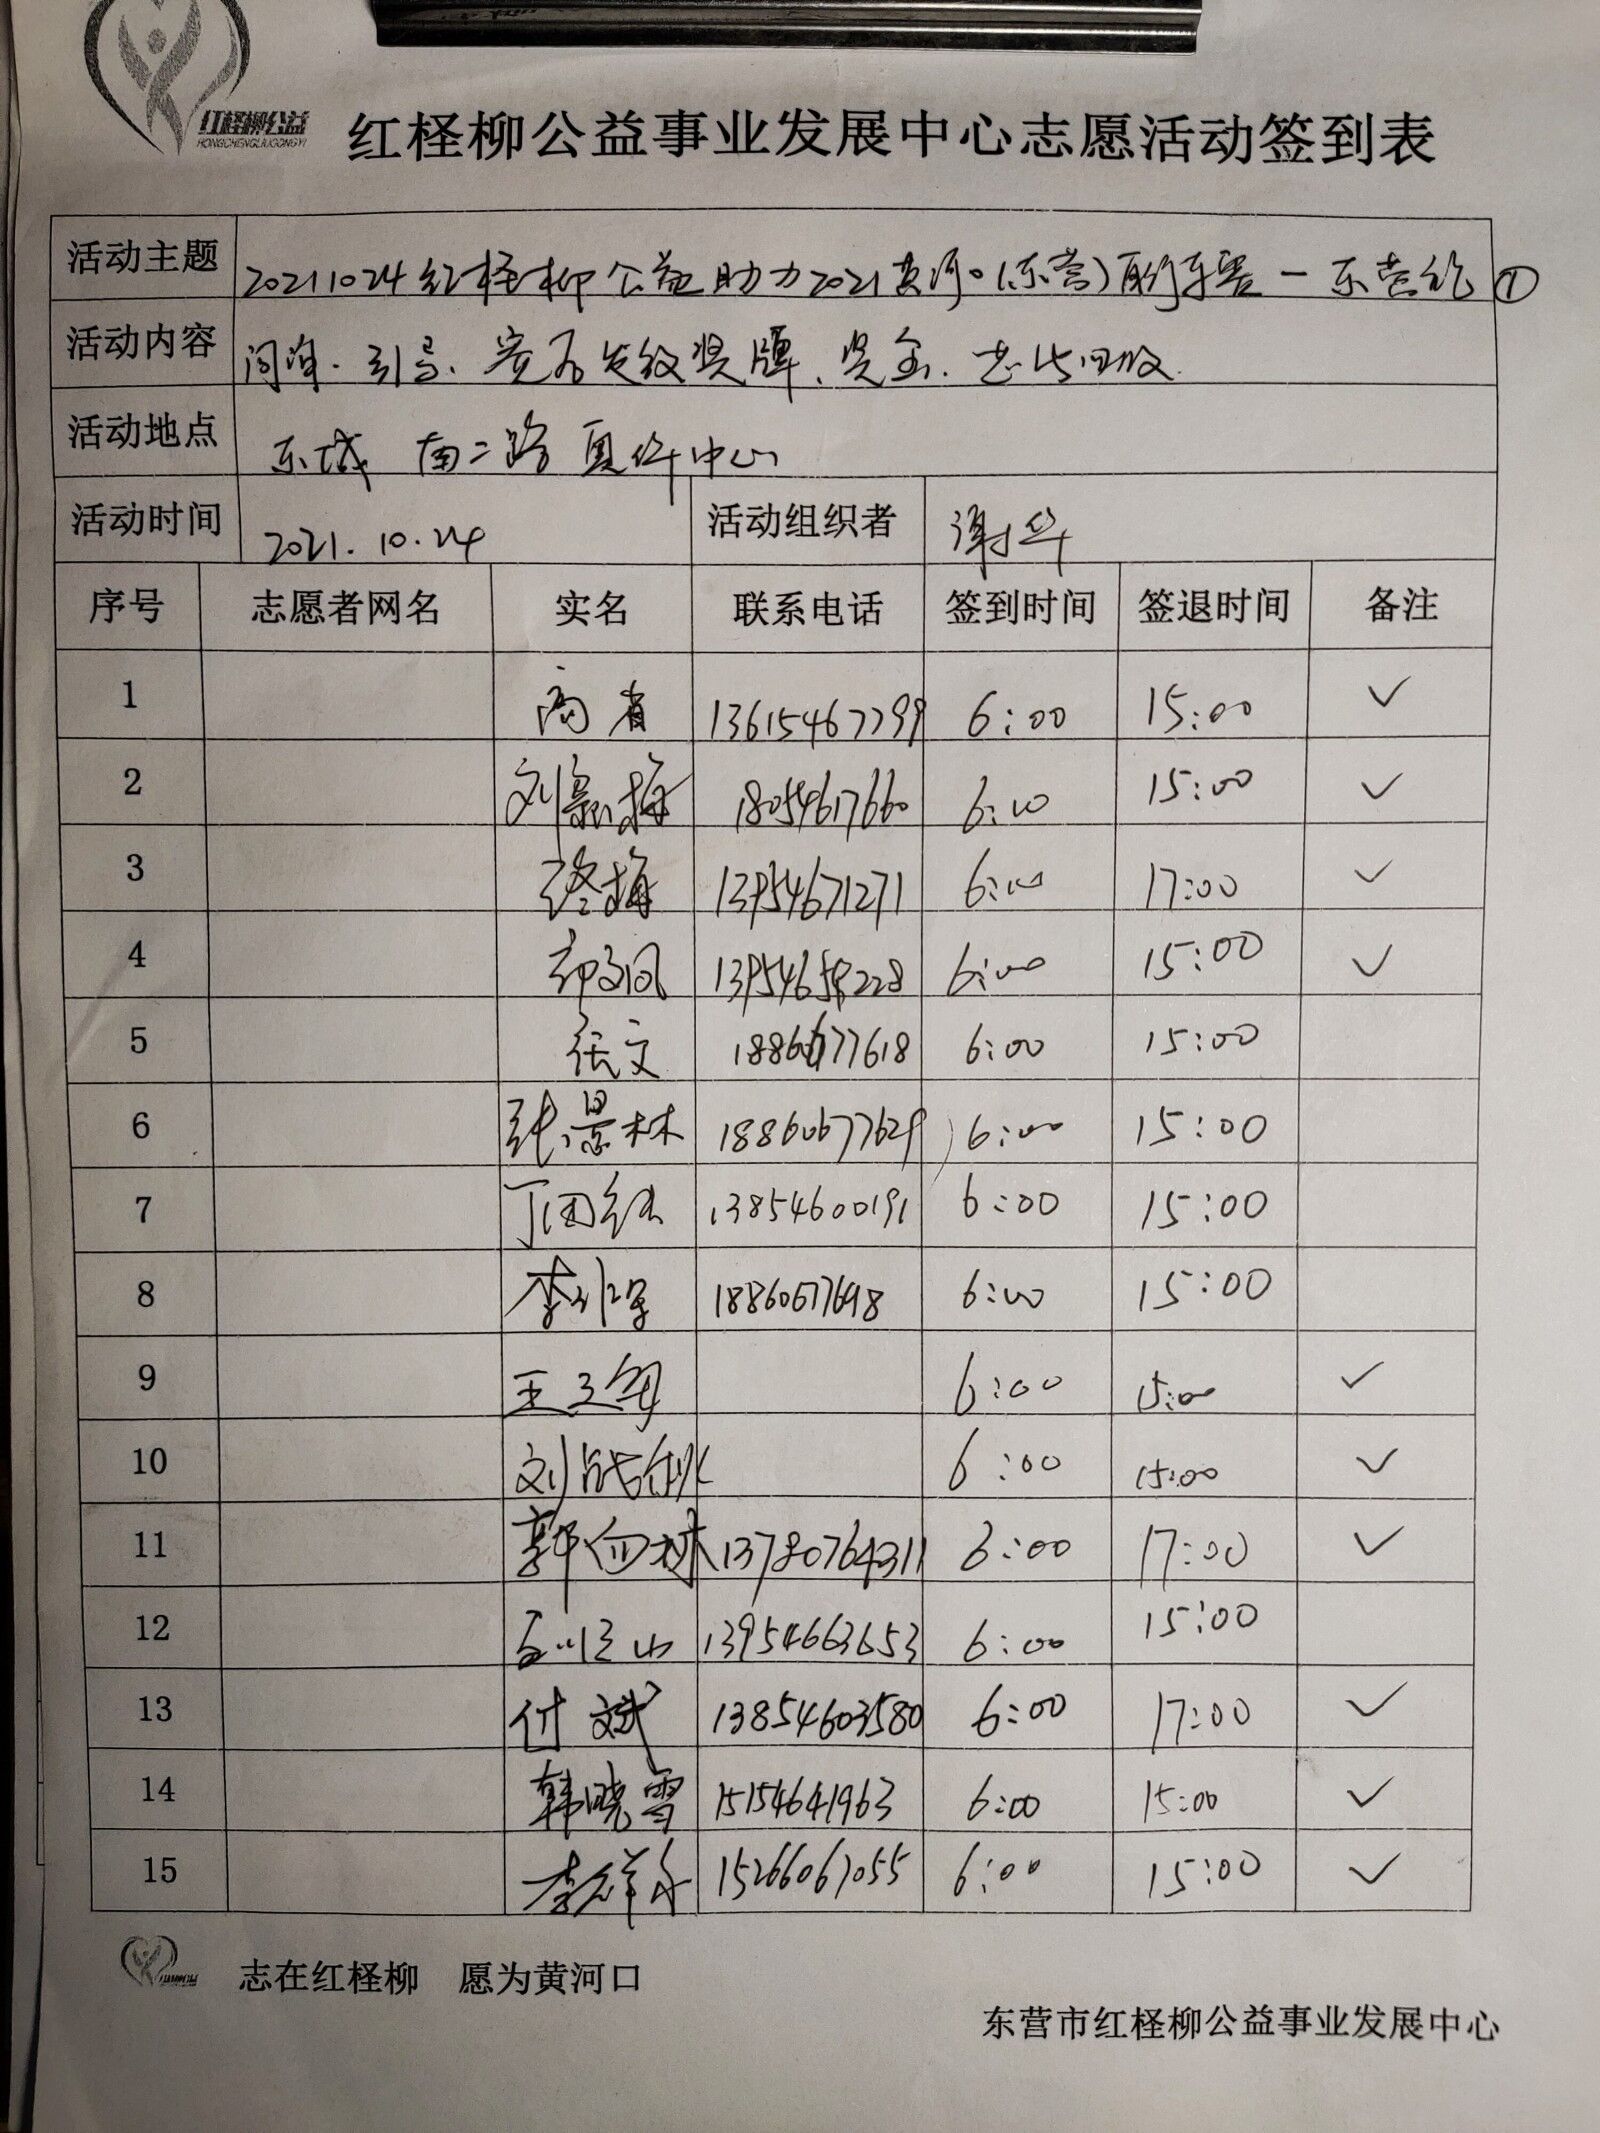 红柽柳公益
HONGCHENGLIUGONGYI
红柽柳公益事业发展中心志愿活动签到表
活动主题 20211024红柽柳公益助力2021黄河口(东营) ①
活动内容 发放奖牌、奖金、
活动地点 东城 南二路 中心
活动时间 2021.10.24 活动组织者 谢华
序号 志愿者网名 实名 联系电话 签到时间 签退时间 备注
1 13615467799 6:00 15:00 ✓
2 刘新梅 18054617660 6:00 15:00 ✓
3 13954671271 6:00 17:00 ✓
4 6:00 15:00 ✓
5 张文 18860677618 6:00 15:00
6 张景林 18860677629 6:00 15:00
7 13854600191 6:00 15:00
8 18860677698 6:00 15:00
9 6:00 15:00 ✓
10 6:00 15:00 ✓
11 13780764311 6:00 17:00 ✓
12 13954663653 6:00 15:00
13 付斌 13854603580 6:00 17:00 ✓
14 韩晓雪 15154641963 6:00 15:00 ✓
15 15266067055 6:00 15:00 ✓
志在红柽柳 愿为黄河口
东营市红柽柳公益事业发展中心